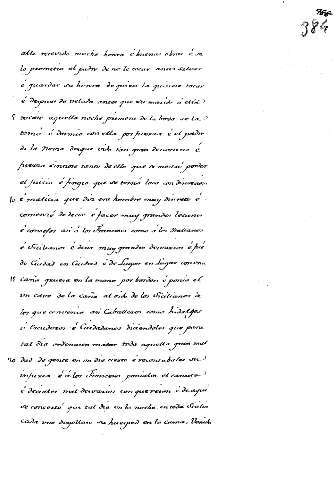 384
alle servido mucho honra é buenas obras é se
lo prometio el padre de no le casar antes selver
é guardar su honra de quien la quisiese sacar
é despues de velada antes que su marido á ella
5 tocase aquella noche primera de la boda se la
tomó é durmio con ella por fuerza é el padre
de la Novia desque vido tan gran desventura é
fuerza é sintose tanto de ello que se mostró perder
el juicio é fingio que se tornó loco con discrecion
10 é malicia que diz era hombre muy discreto é
comenzó de decir é facer muy grandes locuras
é consejos asi á los Franceses como á los Italianos
é Sicilianos é decia muy grandes desvarios é fué
de Ciudad en Ciudad é de Lugar en Lugar con una
15 caña gruesa en la mano por bordon é ponia el
un cavo de la caña al oido de los Sicilianos de
los que convenia asi Caballeros como hidalgos
é Escuderos é Ciudadanos diciendoles que para
tal dia ordenasen matar toda aquella gran mal
20 dad de gente en un dia cierto é recontabales su
injuria é á los Franceses ponialos el canuto
é decialos mil desvarios con que reian é de aqui
se concertó que tal dia en la noche en toda Sicilia
cada uno degollase su huesped en la cama,